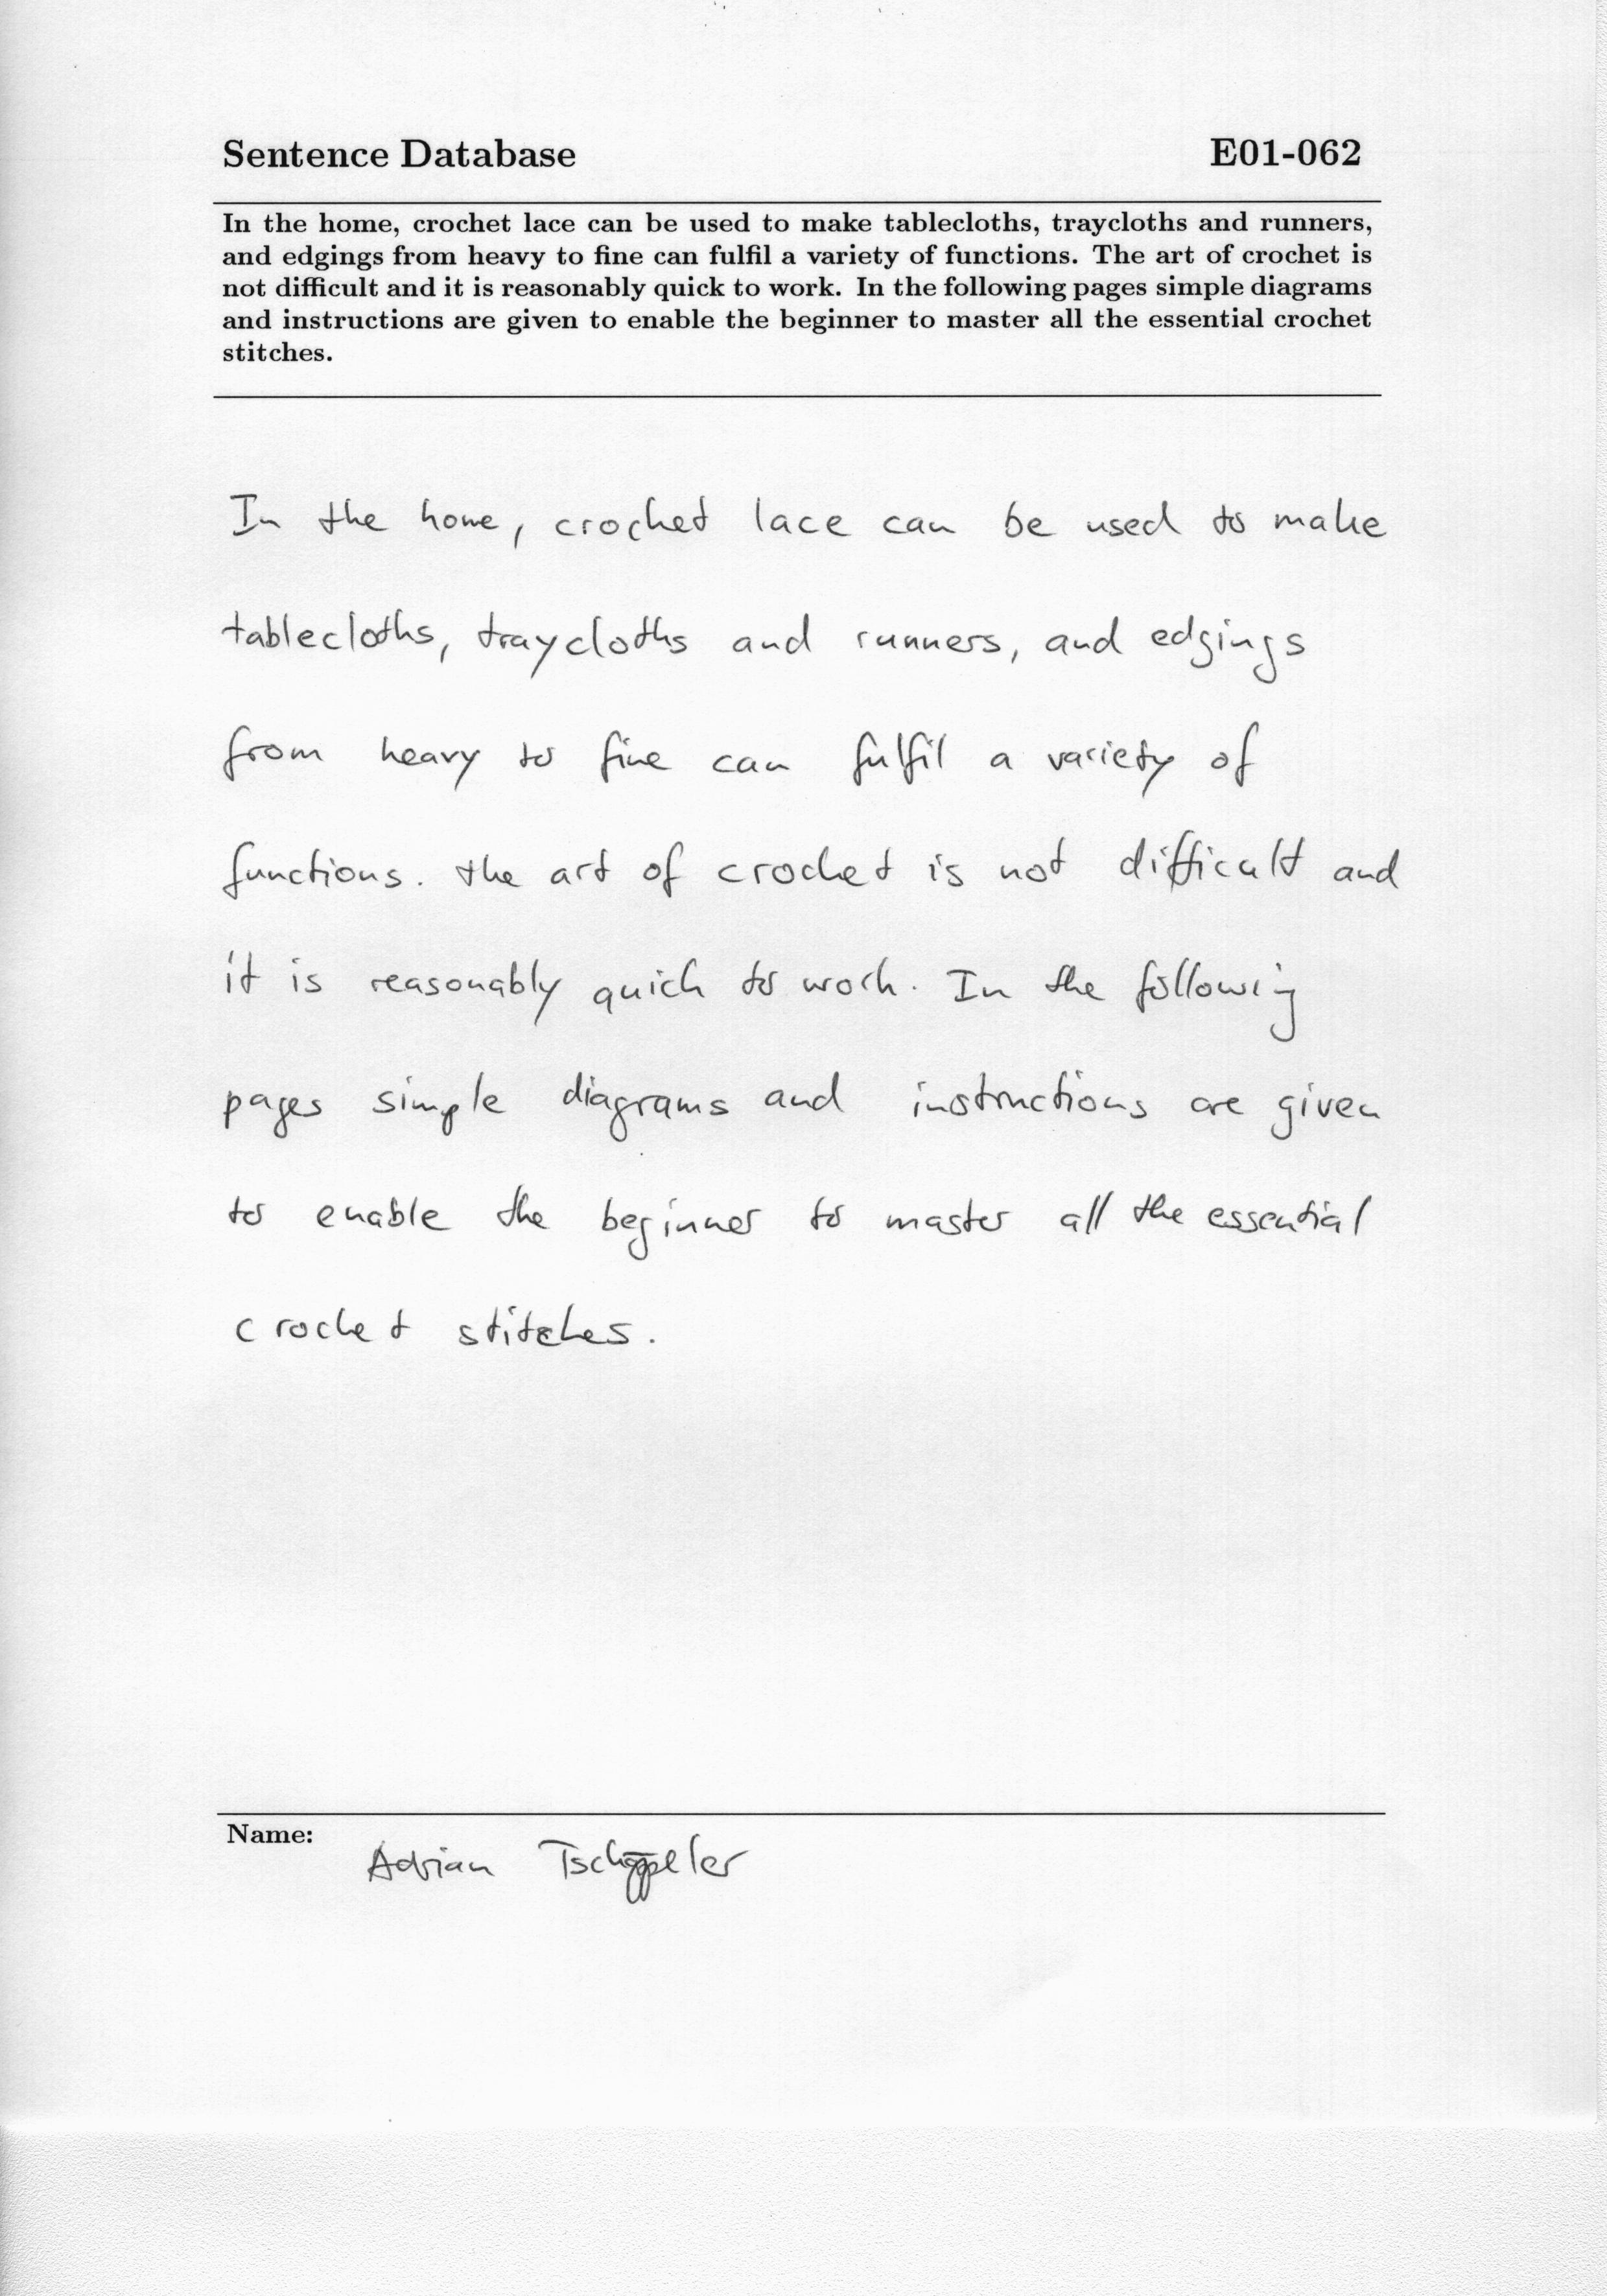 Sentence Database E01-062
In the home, crochet lace can be used to make tablecloths, traycloths and runners,
and edgings from heavy to fine can fulfil a variety of functions. The art of crochet is
not difficult and it is reasonably quick to work. In the following pages simple diagrams
and instructions are given to enable the beginner to master all the essential crochet
stitches.
In the home, crochet lace can be used to make
tablecloths, traycloths and runners, and edgings
from heavy to fine can fulfil a variety of
functions. the art of crochet is not difficult and
it is reasonably quick to work. In the following
pages simple diagrams and instructions are given
to enable the beginner to master all the essential
crochet stitches.
Name:
Adrian